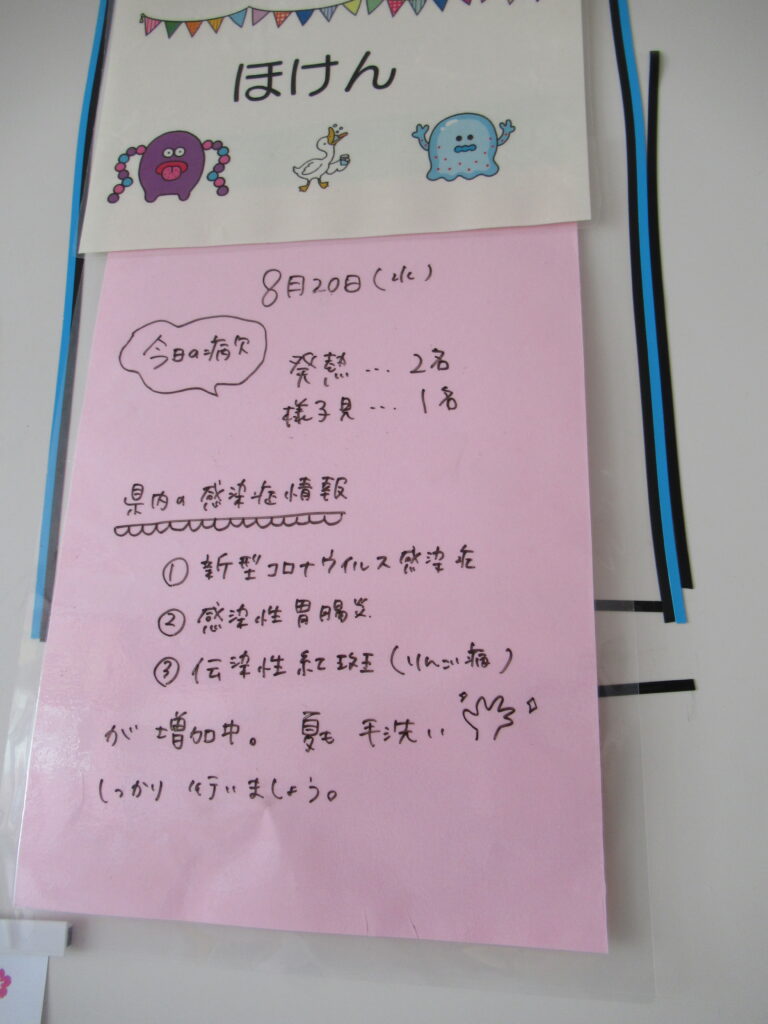 ほけん
8月20日(水)
今日の病欠
発熱…2名
様子見…1名
県内の感染症情報
① 新型コロナウイルス感染症
② 感染性胃腸炎
③ 伝染性紅斑(りんご病)
が増加中。夏も手洗い
しっかり行いましょう。